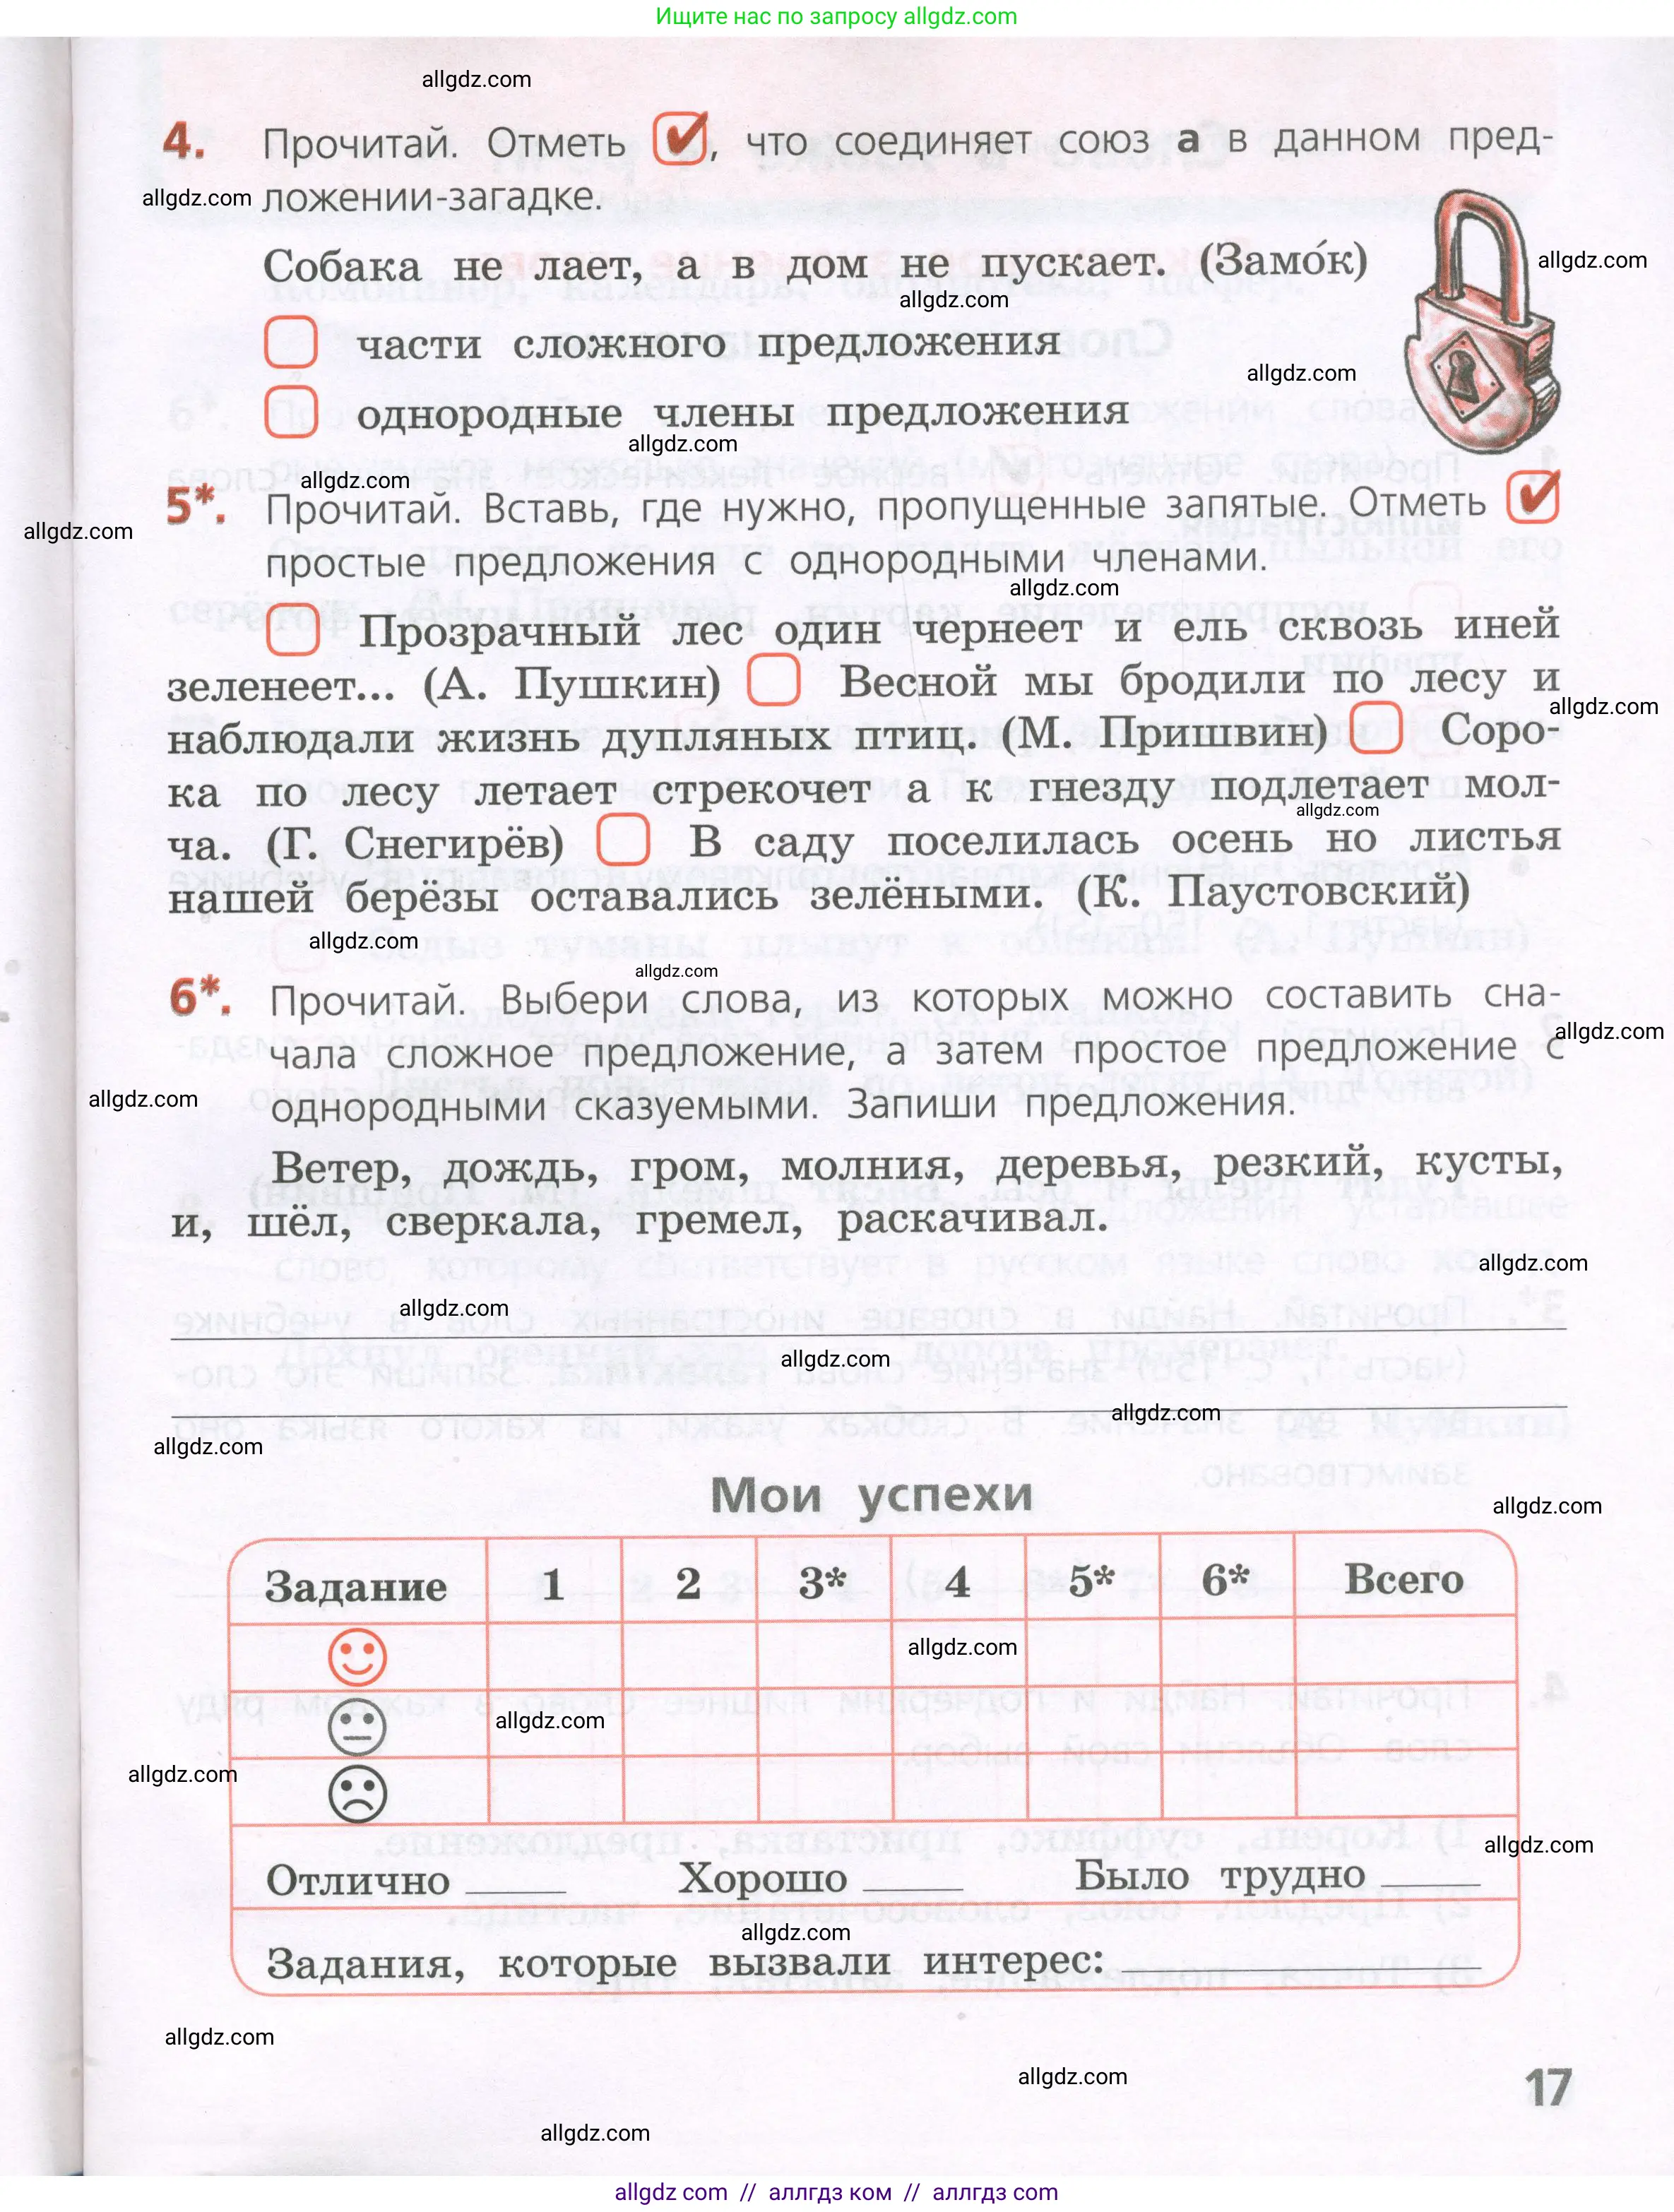 Ищите нас по запросу allgdz.com
allgdz.com
4. Прочитай. Отметь ✔, что соединяет союз а в данном пред-
allgdz.com ложении-загадке.
Собака не лает, а в дом не пускает. (Замо́к)
allgdz.com
allgdz.com
части сложного предложения
allgdz.com
однородные члены предложения
allgdz.com
allgdz.com
5*. Прочитай. Вставь, где нужно, пропущенные запятые. Отметь ✔
allgdz.com
простые предложения с однородными членами.
allgdz.com
Прозрачный лес один чернеет и ель сквозь иней
зеленеет... (А. Пушкин) Весной мы бродили по лесу и
allgdz.com
наблюдали жизнь дупляных птиц. (М. Пришвин) Соро-
ка по лесу летает стрекочет а к гнезду подлетает мол-
allgdz.com
ча. (Г. Снегирёв) В саду поселилась осень но листья
нашей берёзы оставались зелёными. (К. Паустовский)
allgdz.com
allgdz.com
6*. Прочитай. Выбери слова, из которых можно составить сна-
allgdz.com
чала сложное предложение, а затем простое предложение с
allgdz.com
однородными сказуемыми. Запиши предложения.
Ветер, дождь, гром, молния, деревья, резкий, кусты,
и, шёл, сверкала, гремел, раскачивал.
allgdz.com
allgdz.com
allgdz.com
allgdz.com
allgdz.com
Мои успехи
allgdz.com
Задание 1 2 3* 4 5* 6* Всего
allgdz.com
allgdz.com
allgdz.com
allgdz.com
Отлично Хорошо Было трудно
allgdz.com
Задания, которые вызвали интерес:
allgdz.com
allgdz.com
17
allgdz.com
allgdz com // аллгдз ком // аллгдз com